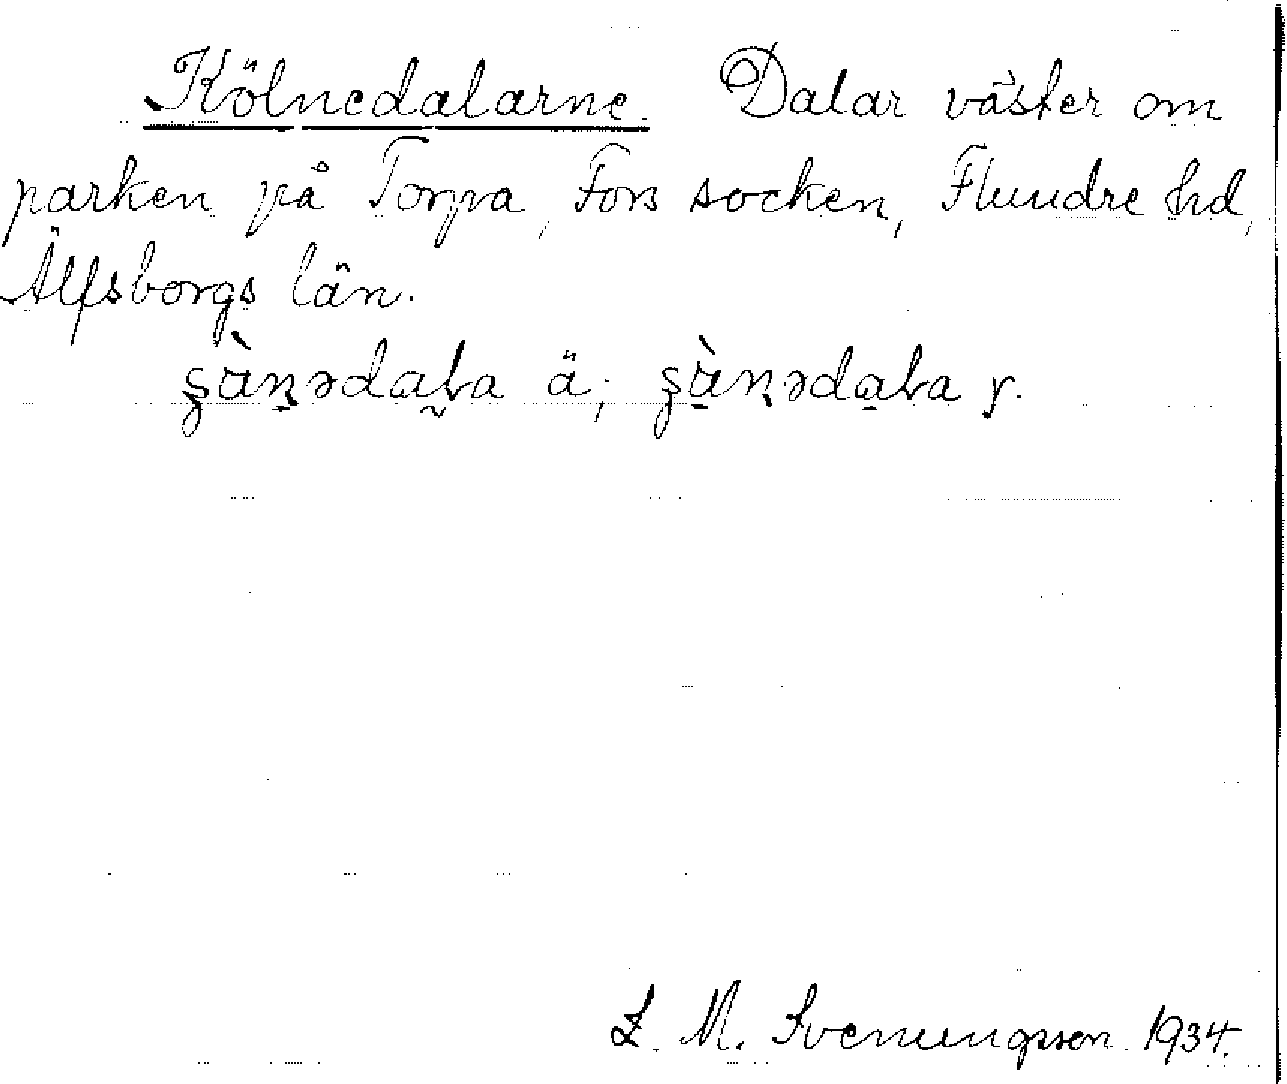 Kölnedalarne. Dalar väster om
parken på Torpa, Fors socken, Flundre hd,
Älfsborgs län.
ä; y.
S. M. Svenungsson 1934.